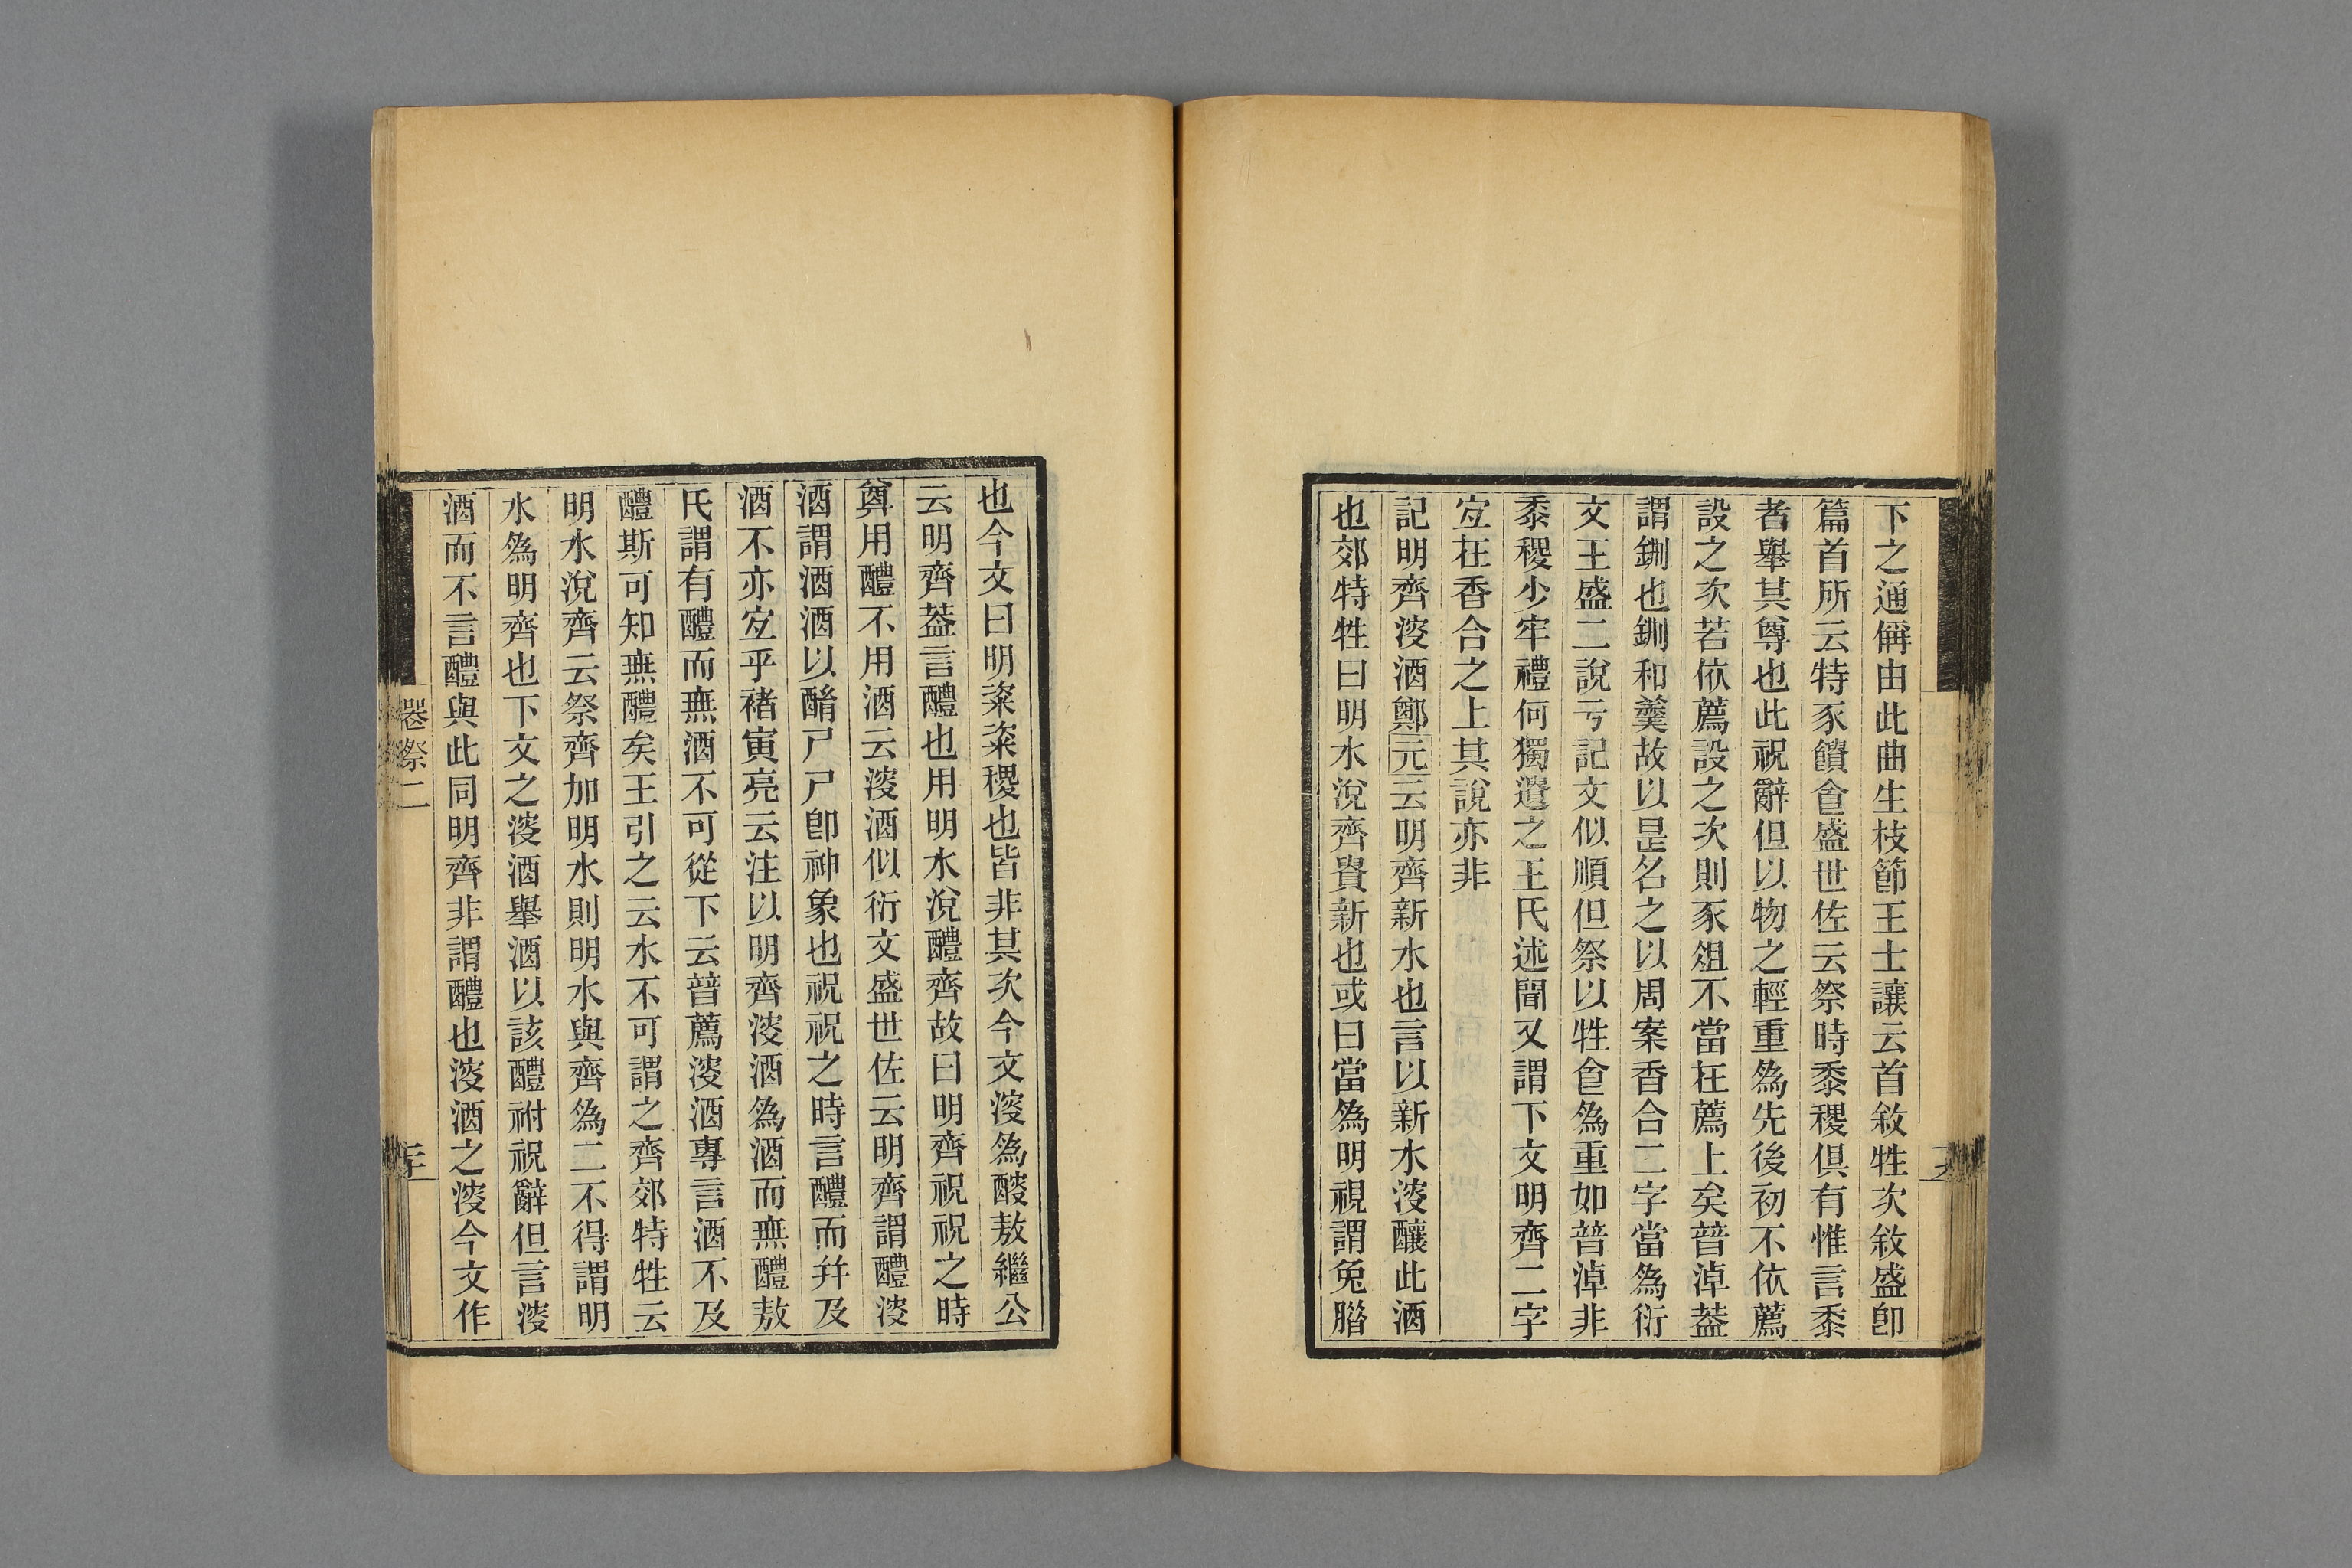 下之通偁由此曲生枝節王士讓云首敘牲次敘盛卽
篇首所云特豕饋食盛世佐云祭時黍稷俱有惟言黍
者舉其尊也此祝辭但以物之輕重爲先後初不依薦
設之次若依薦設之次則豕俎不當在薦上矣普淖葢
謂鉶也鉶和羹故以是名之以周案香合二字當爲衍
文王盛二說亏記文似順但祭以牲食爲重如普淖非
黍稷少牢禮何獨遺之王氏述聞又謂下文明齊二字
宐在香合之上其說亦非
記明齊溲酒鄭元云明齊新水也言以新水溲釀此酒
也郊特牲曰明水涗齊貴新也或曰當爲明視謂兔腊
也今文曰明粢粢稷也皆非其次今文溲爲醙敖繼公
云明齊葢言醴也用明水涗醴齊故曰明齊祝祝之時
奠用醴不用酒云溲酒似衍文盛世佐云明齊謂醴溲
酒謂酒酒以酳尸尸卽神象也祝祝之時言醴而幷及
酒不亦宐乎褚寅亮云注以明齊溲酒爲酒而無醴敖
氏謂有醴而無酒不可從下云普薦溲酒專言酒不及
醴斯可知無醴矣王引之云水不可謂之齊郊特牲云
明水涗齊云祭齊加明水則明水與齊爲二不得謂明
水爲明齊也下文之溲酒舉酒以該醴祔祝辭但言溲
酒而不言醴與此同明齊非謂醴也溲酒之溲今文作
祭二